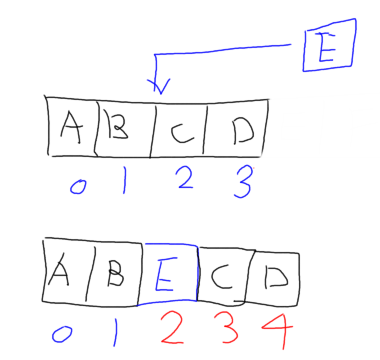 E
A B C D
0 1 2 3
A B E C D
0 1 2 3 4